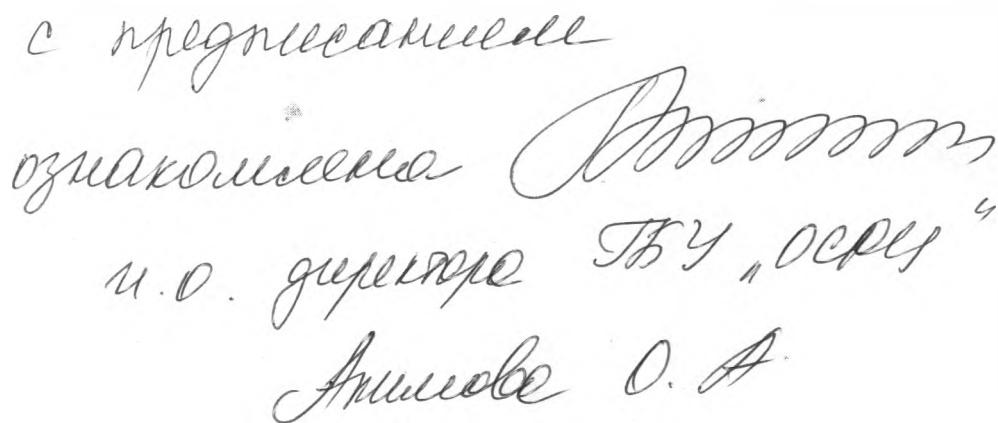 с предписанием
ознакомлена
и.о. директора ГБУ „ОСРЦ“
Акимова О. А